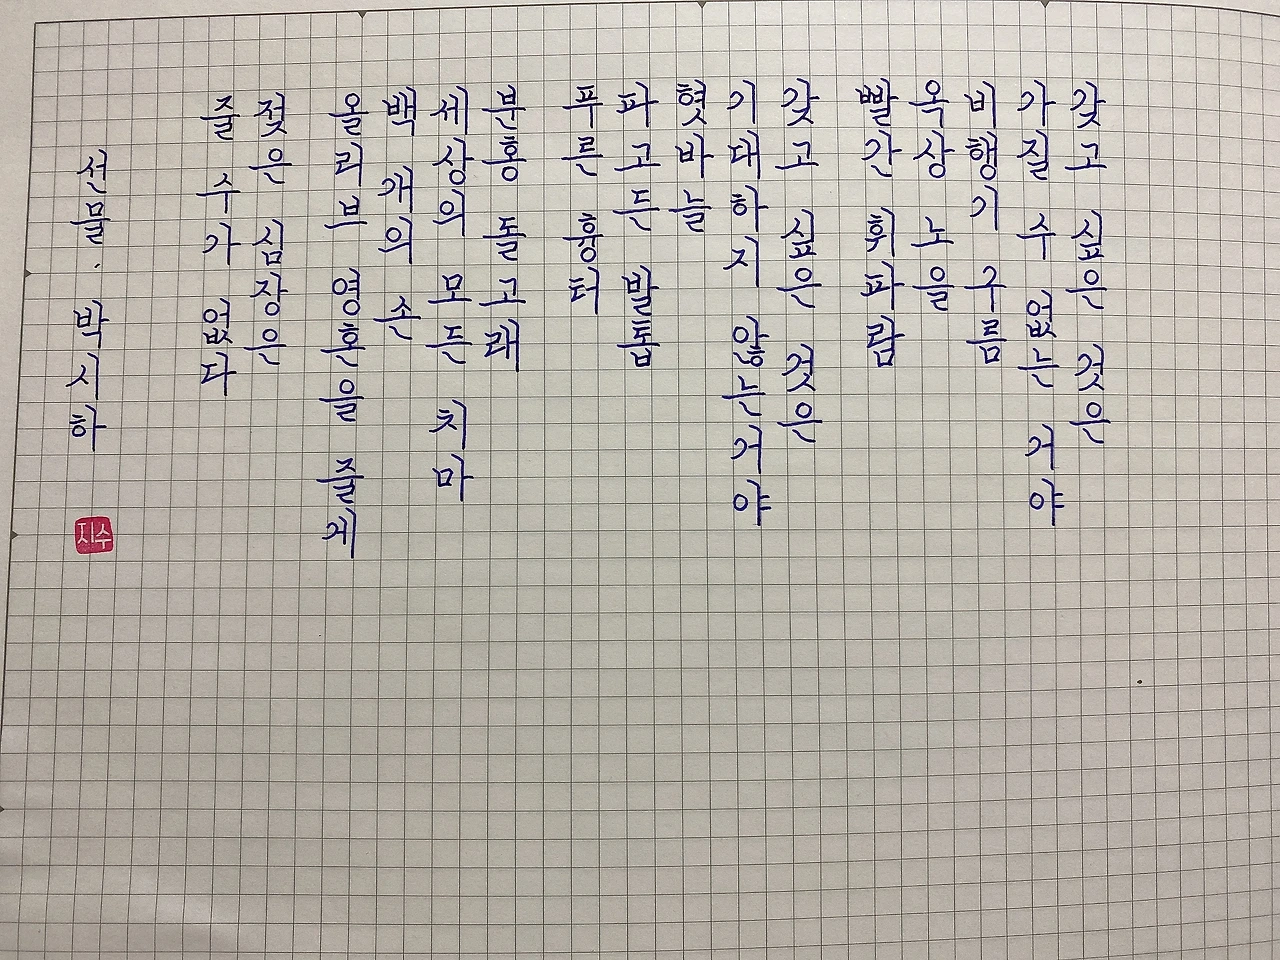 갖고 싶은 것은
가질 수 없는 거야
비행기 구름
옥상 노을
빨간 휘파람
갖고 싶은 것은
기대하지 않는 거야
혓바늘
파고든 발톱
푸른 흉터
분홍 돌고래
세상의 모든 치마
백 개의 손
올리브 영혼을 줄게
젖은 심장은
줄 수가 없다
선물. 박시하
지수